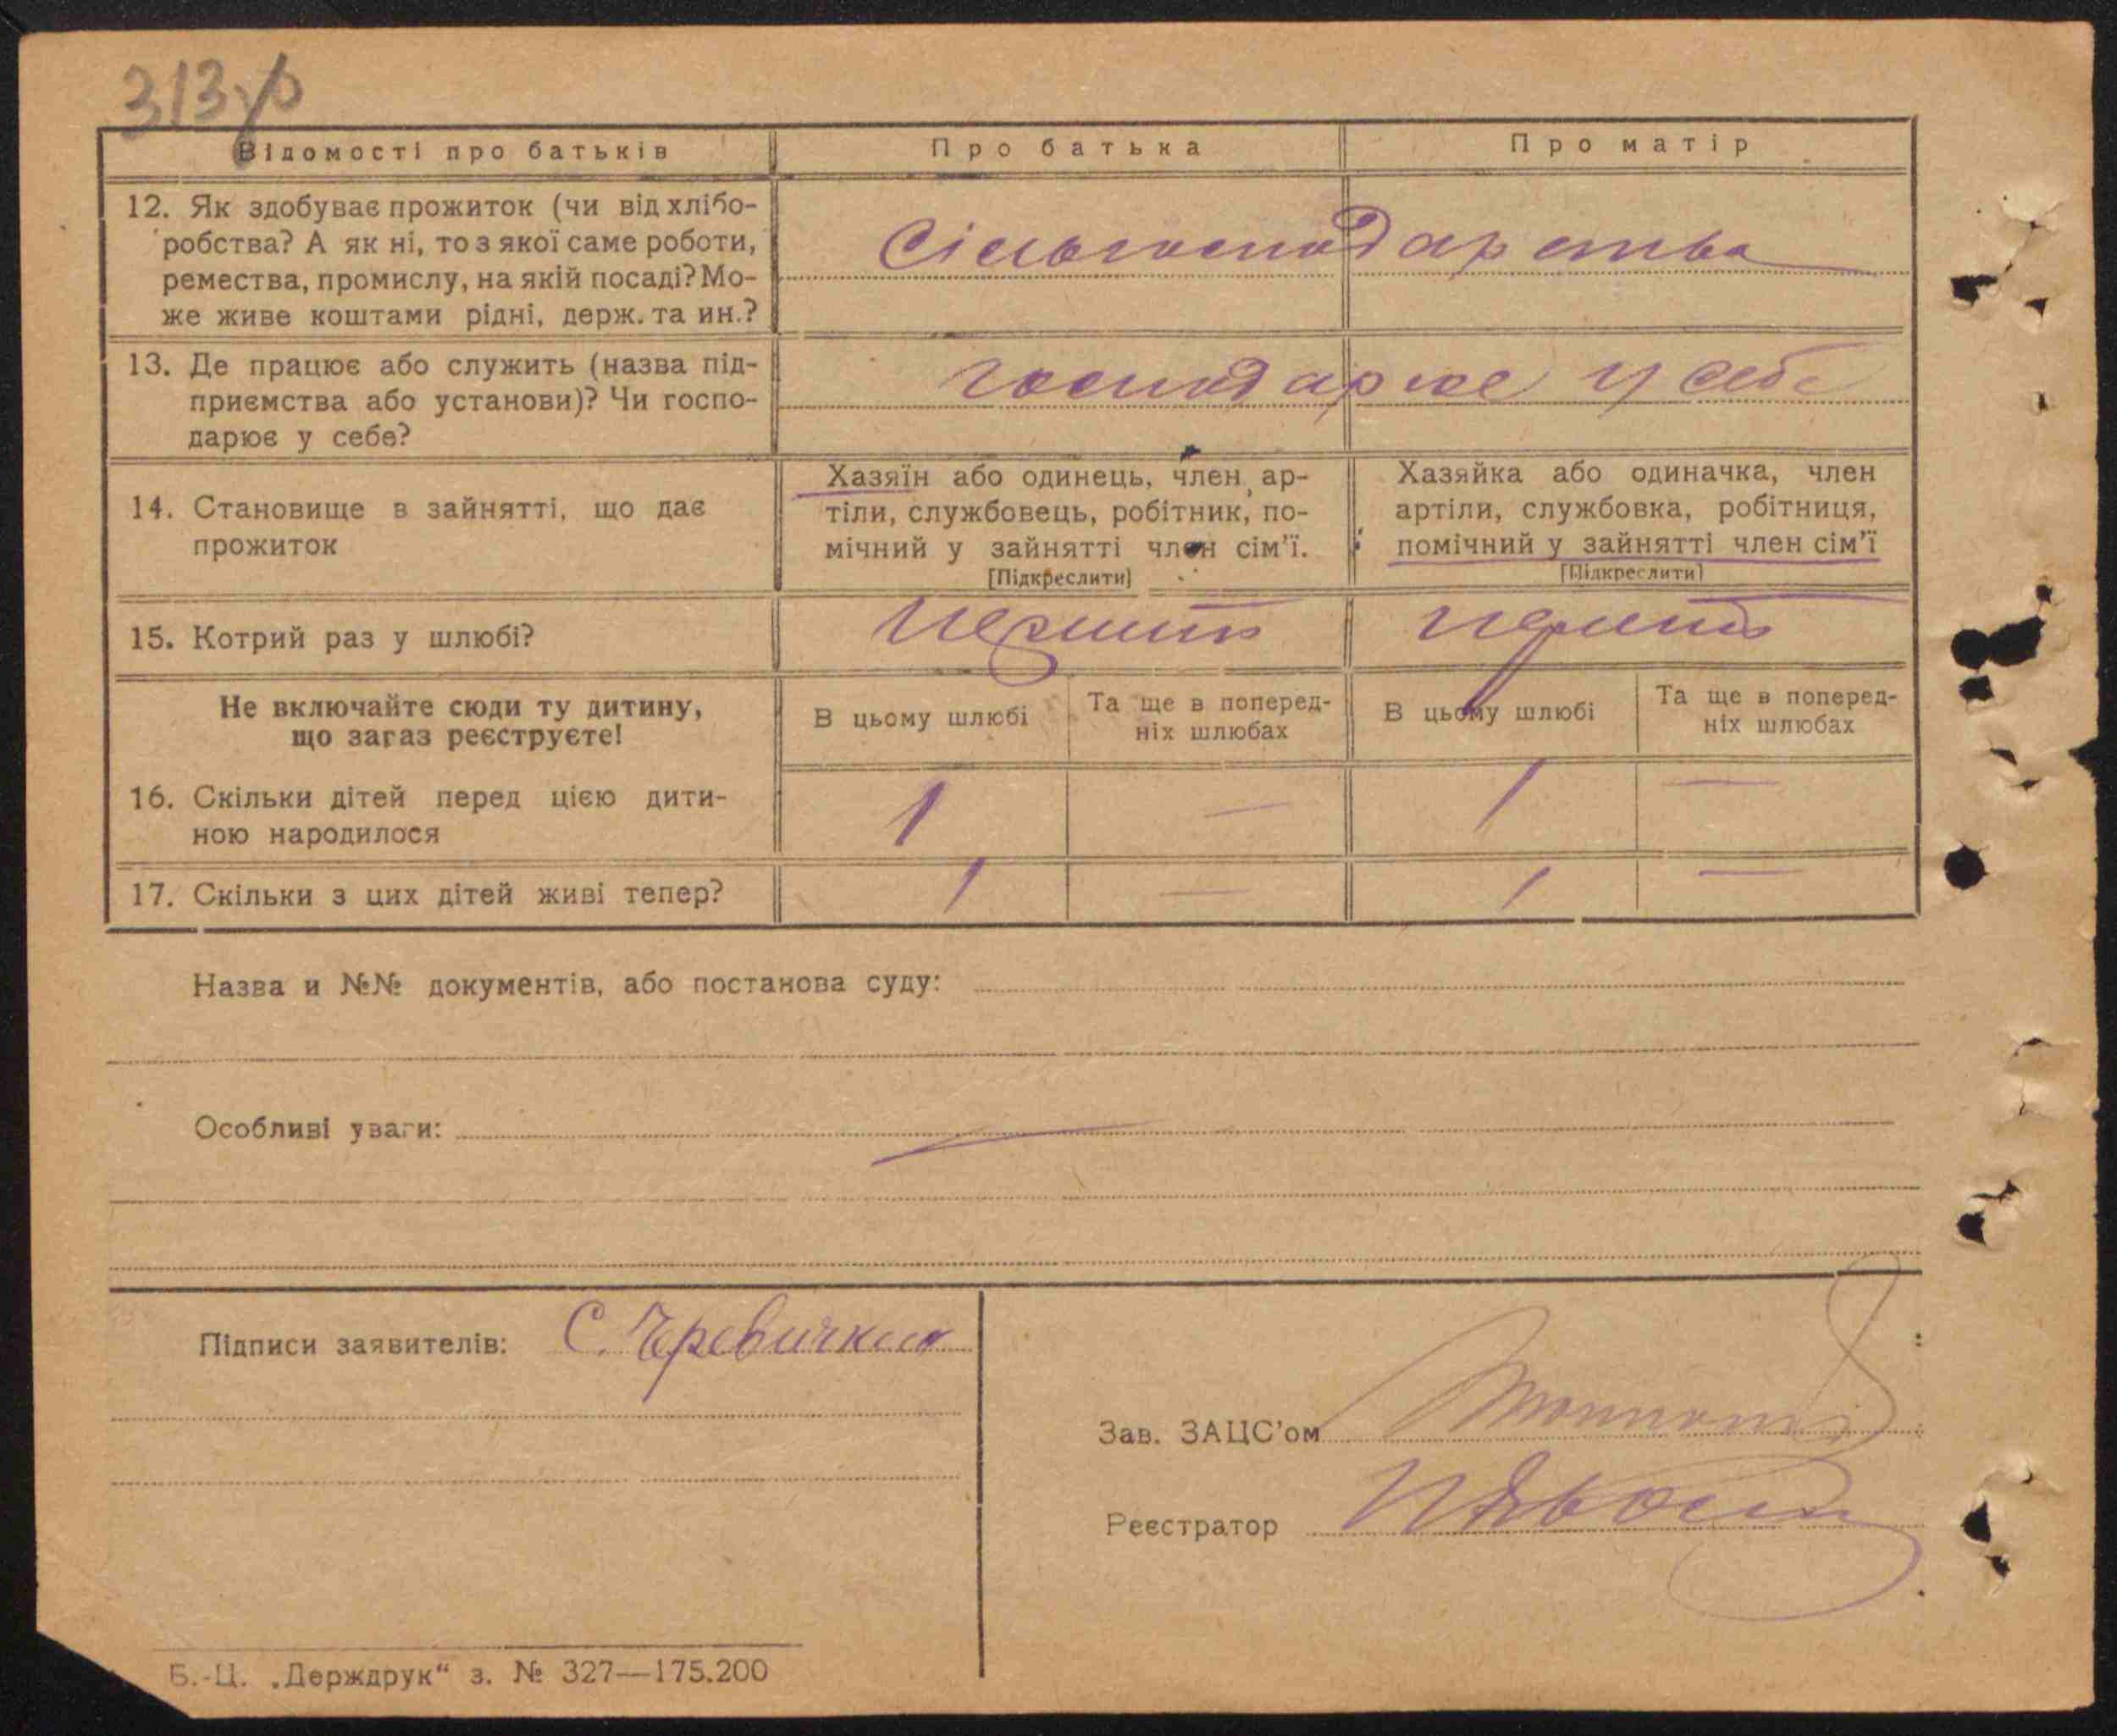 313
Відомості про батьків Про батька Про матір
12. Як здобуває прожиток (чи від хлібо-
робства? А як ні, то з якої саме роботи,
ремества, промислу, на якій посаді? Мо-
же живе коштами рідні, держ. та ин.?
сільгосподарства
13. Де працює або служить (назва під-
приємства або установи)? Чи госпо-
дарює у себе?
господарює у себе
14. Становище в зайнятті, що дає
прожиток
Хазяїн або одинець, член ар-
тіли, службовець, робітник, по-
мічний у зайнятті член сім'ї.
[Підкреслити]
Хазяйка або одиначка, член
артіли, службовка, робітниця,
помічний у зайнятті член сім'ї
[Підкреслити]
15. Котрий раз у шлюбі?
Не включайте сюди ту дитину,
що зараз реєструєте!
В цьому шлюбі
Та ще в поперед-
ніх шлюбах
В цьому шлюбі
Та ще в поперед-
ніх шлюбах
16. Скільки дітей перед цією дити-
ною народилося
1 — 1 —
17. Скільки з цих дітей живі тепер? 1 — 1 —
Назва и №№ документів, або постанова суду:
Особливі уваги: —
Підписи заявителів: С. Чревичкин
Зав. ЗАЦС'ом
Реєстратор
Б.-Ц. „Держдрук“ з. № 327—175.200